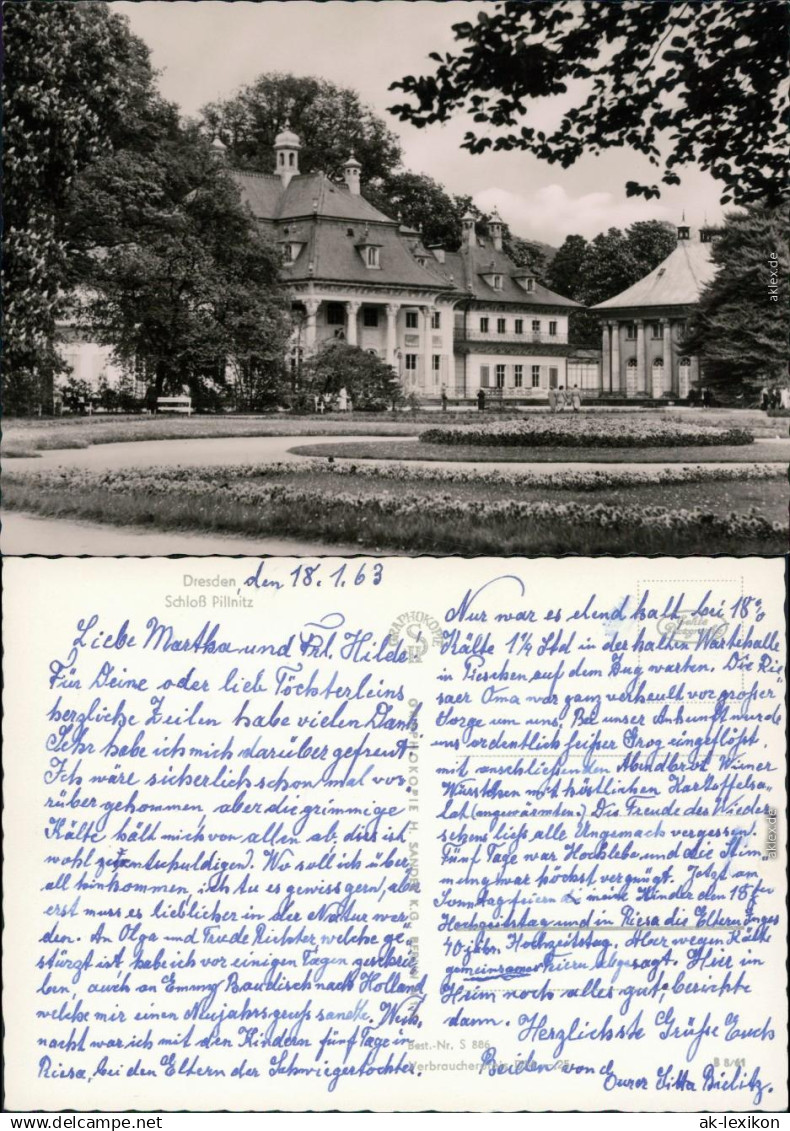 aklex.de
aklex.de
Dresden, den 18.1.63
Schloß Pillnitz
Liebe Martha und Frl. Hilde.
Für Deine oder lieb Töchterleins
herzliche Zeilen habe vielen Dank
Sehr habe ich mich darüber gefreut
Ich wäre sicherlich schon mal vor,
rüber gekommen, aber die grimmige
Kälte hält mich von allen ab. dies ist
wohl zu entschuldigen. Wo soll ich über,
all hinkommen, ich tu es gewiss gern, aber
erst muss es lieblicher in der Natur wer
den. An Olga und Trude Richter, welche ge
stürzt ist, habe ich vor einigen Tagen geschrie
ben, auch an Emmy Baudisch nach Holland
welche mir einen Neujahrsgruß sandte. Weih,
nacht war ich mit den Kindern fünf Tage in
Riesa, bei den Eltern der Schwiegertochter.
GRAPHOKOPIE
GRAPHOKOPIE H. SANDER K.G., BERLIN
Best.-Nr. S 886
Verbraucherpreis
Nur war es elend kalt bei 18%
Kälte 1¼ Std in der kalten Wartehalle
in Pieschen, auf dem Zug warten. Die Rie
saer Oma war ganz verheult vor großer
Sorge um uns. Bei unser Ankunft wurde
uns ordentlich heißer Grog eingeflößt.
mit anschließenden Abendbrot Wiener
Würstchen mit köstlichen Kartoffelsa,
lat (angewärmten). Die Freude des Wieder
sehens ließ alle Ungemach vergessen.
Fünf Tage war Hochlebe und die Stim,
mung war höchst vergnügt. Jetzt am
Sonntag feiern meine Kinder den 15
Hochzeitstag und in Riesa die Eltern
40 jähr. Hochzeitstag. Aber wegen Kälte
gemeinsames Feiern abgesagt. Hier in
Heim noch alles gut, berichte
dann. Herzlichste Grüße Euch
Beiden von Eurer Bielitz.
B 8/61
aklex.de
www.ak-lexikon.de
ak-lexikon